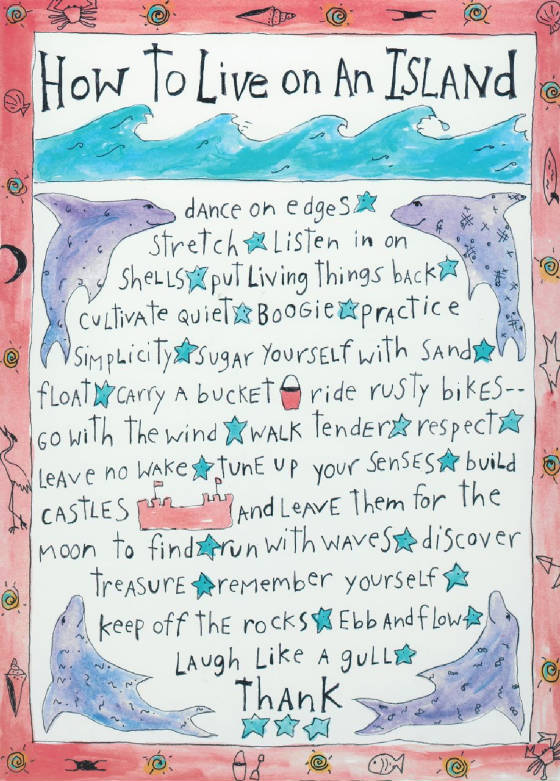 How To Live on An ISLAND
dance on edges
stretch Listen in on
shells put Living things back
cultivate quiet Boogie practice
simplicity sugar yourself with sand
float carry a bucket ride rusty bikes--
go with the wind walk tender respect
leave no wake tune up your senses build
castles and leave them for the
moon to find run with waves discover
treasure remember yourself
keep off the rocks Ebb and flow
Laugh Like a gull
Thank